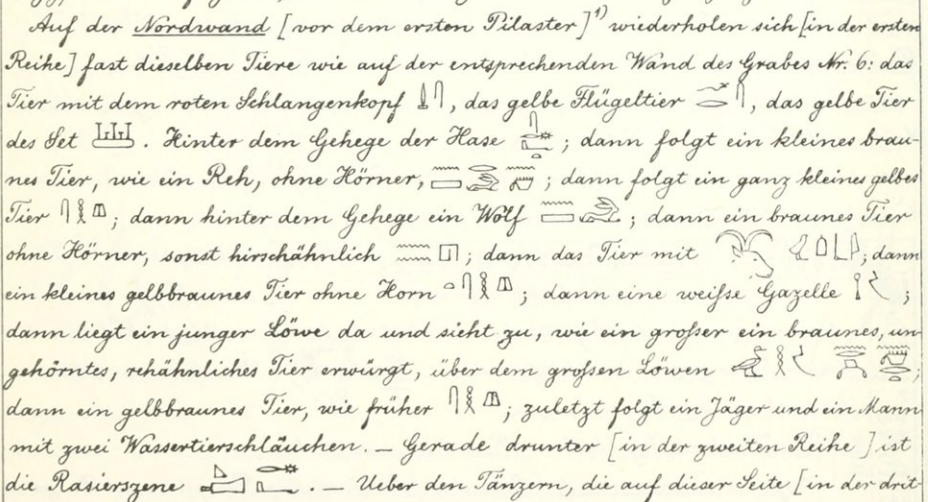 Auf der Nordwand [vor dem ersten Pilaster]¹⁾ wiederholen sich [in der ersten
Reihe] fast dieselben Tiere wie auf der entsprechenden Wand des Grabes Nr. 6: das
Tier mit dem roten Schlangenkopf , das gelbe Flügeltier , das gelbe Tier
des Set . Hinter dem Gehege der Hase ; dann folgt ein kleines brau-
nes Tier, wie ein Reh, ohne Hörner, ; dann folgt ein ganz kleines gelbes
Tier ; dann hinter dem Gehege ein Wolf ; dann ein braunes Tier
ohne Hörner, sonst hirschähnlich ; dann das Tier mit ; dann
ein kleines gelbbraunes Tier ohne Horn ; dann eine weiße Gazelle ;
dann liegt ein junger Löwe da und sieht zu, wie ein großer ein braunes, un-
gehörntes, rehähnliches Tier erwürgt, über dem großen Löwen ;
dann ein gelbbraunes Tier, wie früher ; zuletzt folgt ein Jäger und ein Mann
mit zwei Wassertierschläuchen. — Gerade drunter [in der zweiten Reihe] ist
die Rasierszene . — Ueber den Tänzern, die auf dieser Seite [in der drit-